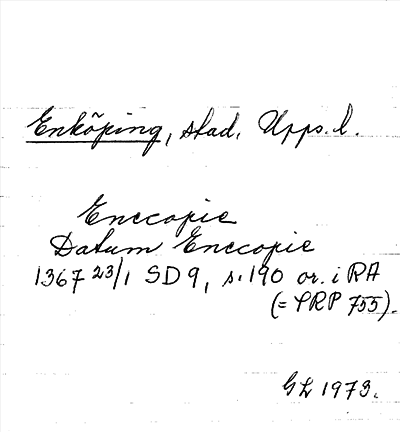 Enköping, stad, Upps. l.
Eneccopie
Datum Eneccopie
1367 23/1 SD 9, s. 190 or. i RA
(= SRP 755).
GL 1973.